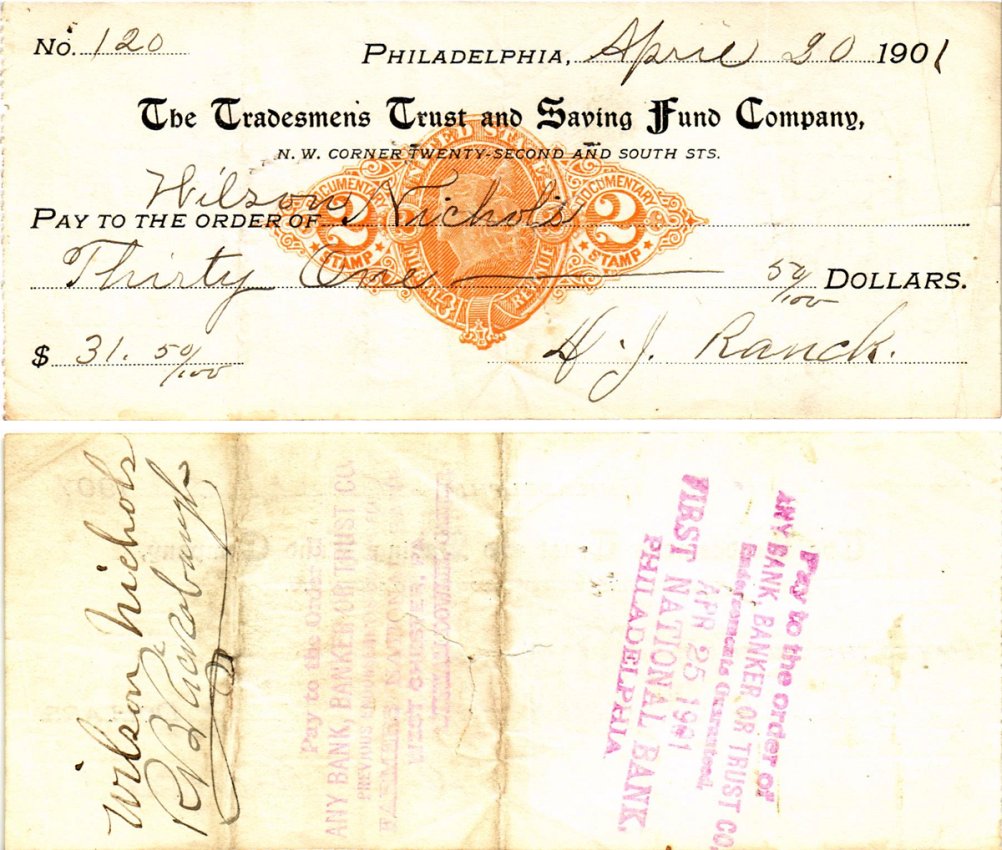 No. 120
PHILADELPHIA, April 20 1901
The Tradesmen's Trust and Saving Fund Company,
N. W. CORNER TWENTY-SECOND AND SOUTH STS.
PAY TO THE ORDER OF Wilson Nichols
Thirty One 50/100 DOLLARS.
$ 31. 50/100
H. J. Ranck.
UNITED STATES
INTERNAL REVENUE
DOCUMENTARY
2
STAMP
DOCUMENTARY
2
STAMP
Wilson Nichols
Pay to the order of
ANY BANK, BANKER OR TRUST CO.
WEST CHESTER, PA.
Pay to the order of
ANY BANK, BANKER OR TRUST CO.
Endorsements Guaranteed
APR 25 1901
FIRST NATIONAL BANK,
PHILADELPHIA